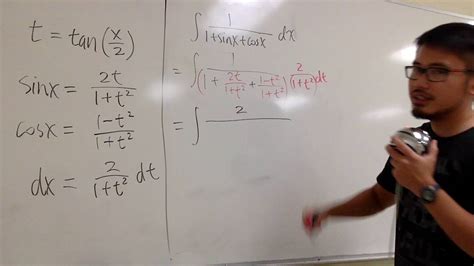 t = tan(x/2)
sinx = 2t/(1+t²)
cosx = (1-t²)/(1+t²)
dx = 2/(1+t²) dt
∫ 1/(1+sinx+cosx) dx
= ∫ 1/(1 + 2t/(1+t²) + (1-t²)/(1+t²)) 2/(1+t²) dt
= ∫ 2/